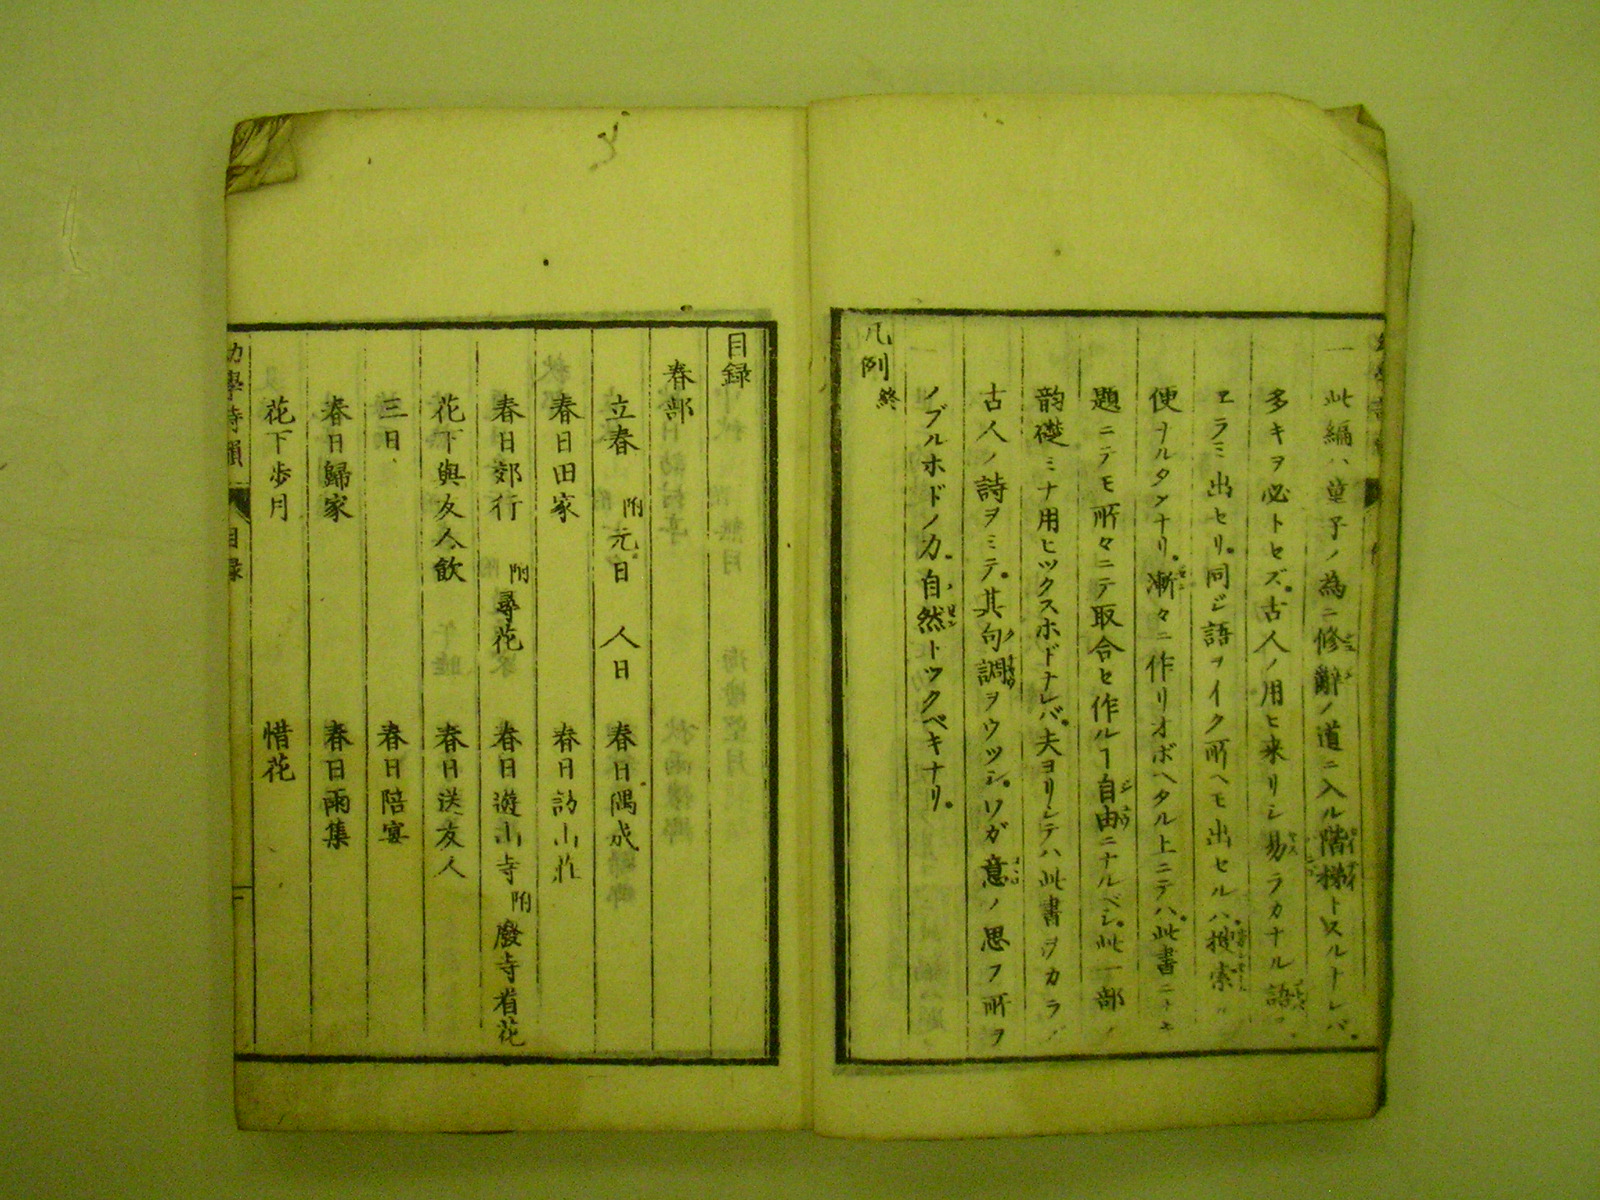 一此編ハ童子ノ為ニ修辭ノ道ニ入ル階梯トスルナレバ。
多キヲ必トセズ。古人ノ用ヒ来リシ易ラカナル語ヲ
ヱラミ出セリ。同ジ語ヲイク所ヘモ出セルハ。搜索ニ
便ナルタメナリ。漸々ニ作リオボヘタル上ニテハ。此書ニナキ
題ニテモ所々ニテ取合セ作ルヿ自由ニナルベシ。此一部ノ
韵礎ミナ用ヒツクスホドナレバ。夫ヨリシテハ此書ヲカラズ
古人ノ詩ヲミテ。其句調ヲウツシ。ワガ意ノ思フ所ヲ
ノブルホドノ力。自然トツクベキナリ。
凡例終
目録
春部
立春 附元日 人日 春日偶成
春日田家 春日訪山荘
春日郊行 附尋花 春日遊山寺 附廢寺看花
花下與友人飲 春日送友人
三日 春日陪宴
春日歸家 春日雨集
花下歩月 惜花
幼學詩韻 目録